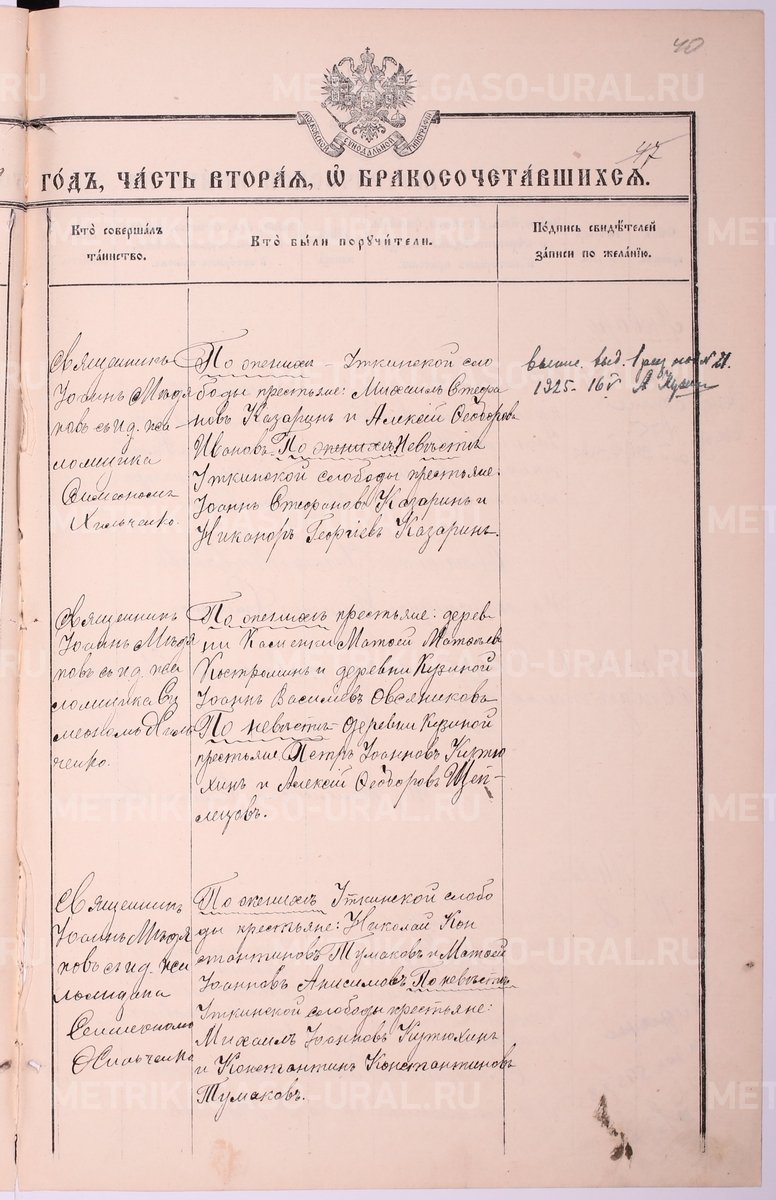 40
МОСКОВСКОЙ СУНОДАЛЬНОЙ ТИПОГРАФІИ
47
ГОДЪ, ЧАСТЬ ВТОРАЯ, Ѡ БРАКОСОЧЕТАВШИХСЯ.
Кто совершалъ таинство.
Кто были поручители.
Подпись свидѣтелей записи по желанію.
Священникъ
Іоаннъ Мѣдя
ковъ съ и. д. пса
ломщика
Симеономъ
Хильченко.
По женихѣ – Уткинской сло
боды крестьяне: Михаилъ Стефа
новъ Казаринъ и Алексѣй Ѳеодоровъ
Ивановъ. По женихѣ Невѣстѣ
Уткинской слободы крестьяне:
Іоаннъ Стефановъ Казаринъ и
Никаноръ Георгіевъ Казаринъ.
выд.
1925
Священникъ
Іоаннъ Мѣдя
ковъ съ и. д. пса
ломщика Си
меономъ Хиль
ченко.
По женихѣ крестьяне: дерев
ни Каменки Матѳей Матѳеевъ
Костроминъ и деревни Кузиной
Іоаннъ Васильевъ Овсяниковъ
По невѣстѣ – деревни Кузиной
крестьяне Петръ Іоанновъ Кутю
хинъ и Алексѣй Ѳеодоровъ Щеп–
лецовъ.
Священникъ
Іоаннъ Мѣдя
ковъ съ и. д. пса
ломщика
Симеономъ
Хильченко
По женихѣ Уткинской слобо
ды крестьяне: Николай Кон
стантиновъ Тумаковъ и Матѳей
Іоанновъ Анисимовъ По невѣстѣ
Уткинской слободы крестьяне:
Михаилъ Іоанновъ Кутюхинъ
и Константинъ Константиновъ
Тумаковъ.
METRIKI.GASO-URAL.RU